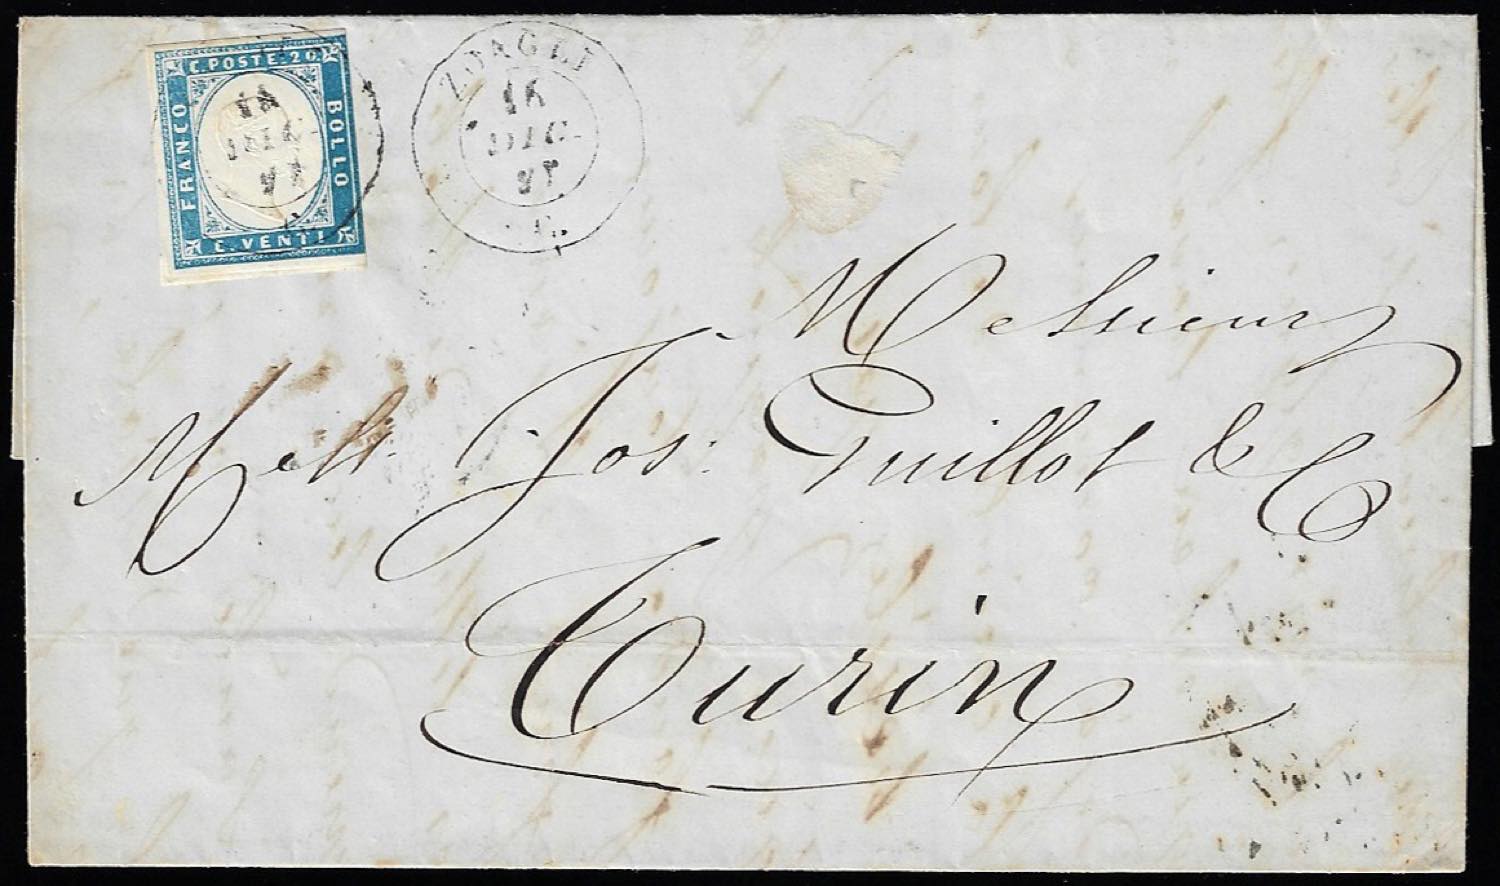 C. POSTE. 20.
FRANCO
BOLLO
C. VENTI
ZOAGLI
DIC.
Messieurs
Mess. Jos: Guillot & C
Turin